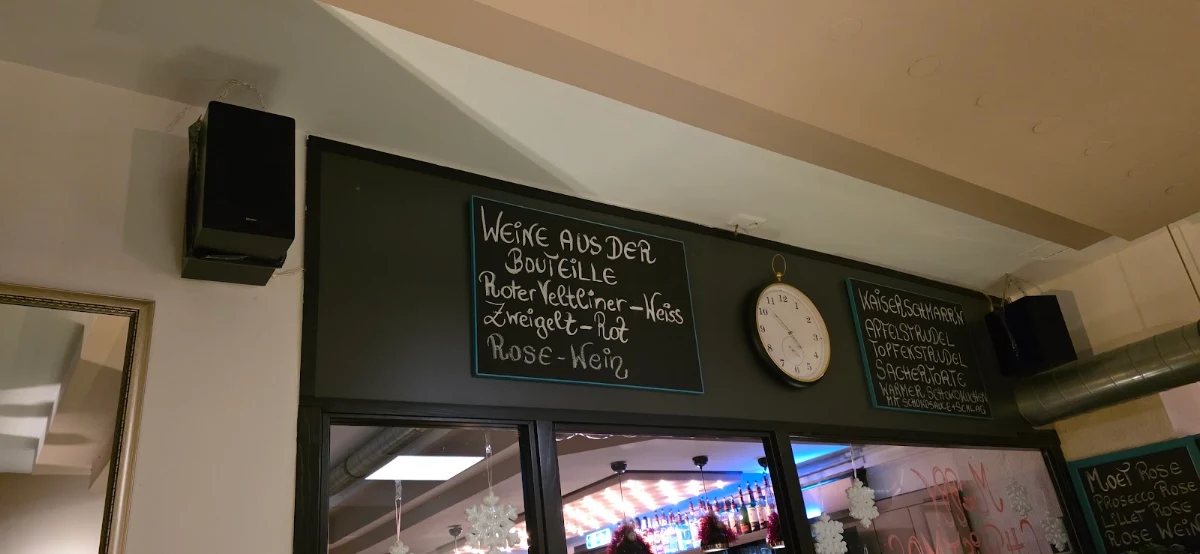 WEINE AUS DER
BOUTEILLE
Roter Veltliner - Weiss
Zweigelt - Rot
Rose - Wein
11 12 1
10 2
9 3
8 4
7 6 5
KAISERSCHMARRN
APFELSTRUDEL
TOPFENSTRUDEL
SACHERTORTE
WARMER SCHOKOKUCHEN
MIT SCHOKOSAUCE + SCHLAG
MOET ROSE
PROSECCO ROSE
LILLET ROSE
ROSE WEIN